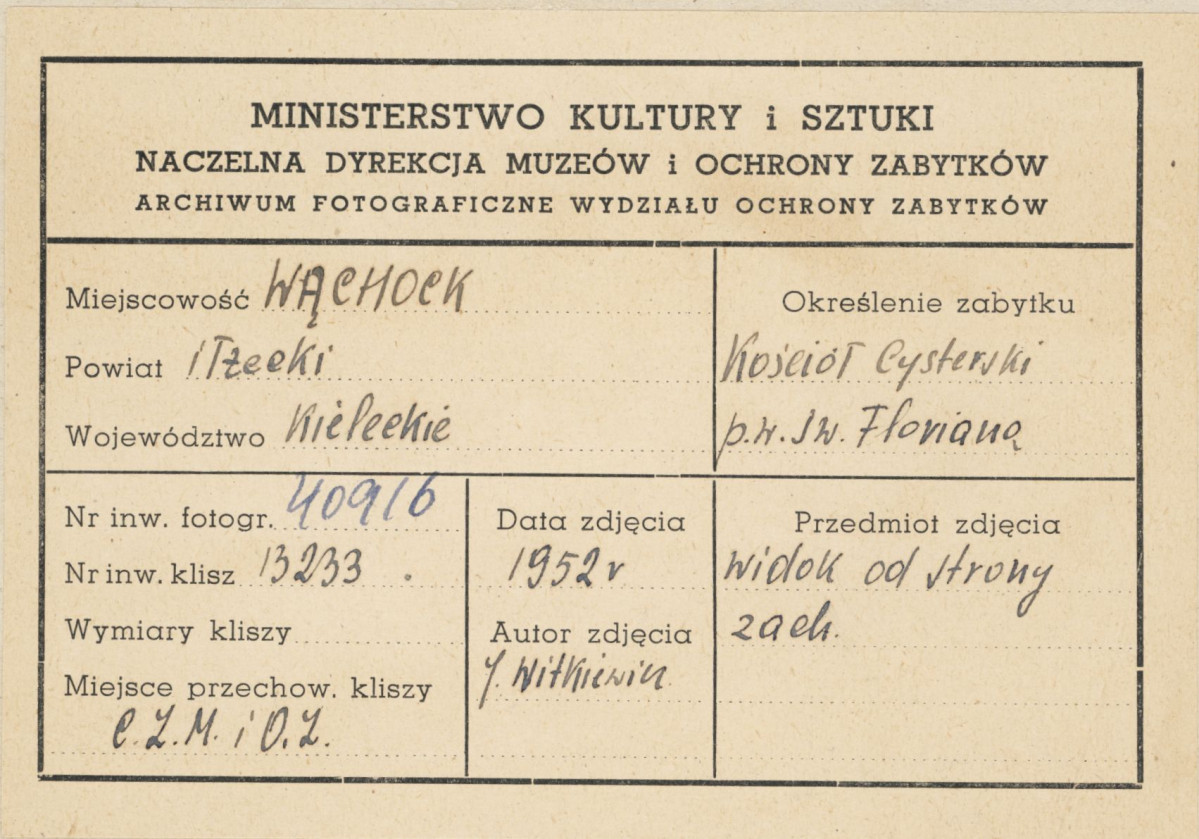 MINISTERSTWO KULTURY i SZTUKI
NACZELNA DYREKCJA MUZEÓW i OCHRONY ZABYTKÓW
ARCHIWUM FOTOGRAFICZNE WYDZIAŁU OCHRONY ZABYTKÓW
Miejscowość WĄCHOCK
Powiat iłżecki
Województwo Kieleckie
Określenie zabytku
Kościół Cysterski
p.w. św. Floriana
Nr inw. fotogr. 40916
Nr inw. klisz 13233
Wymiary kliszy
Miejsce przechow. kliszy
C.Z.M. i O.Z.
Data zdjęcia
1952 r
Autor zdjęcia
J. Witkiewicz
Przedmiot zdjęcia
widok od strony
zach.